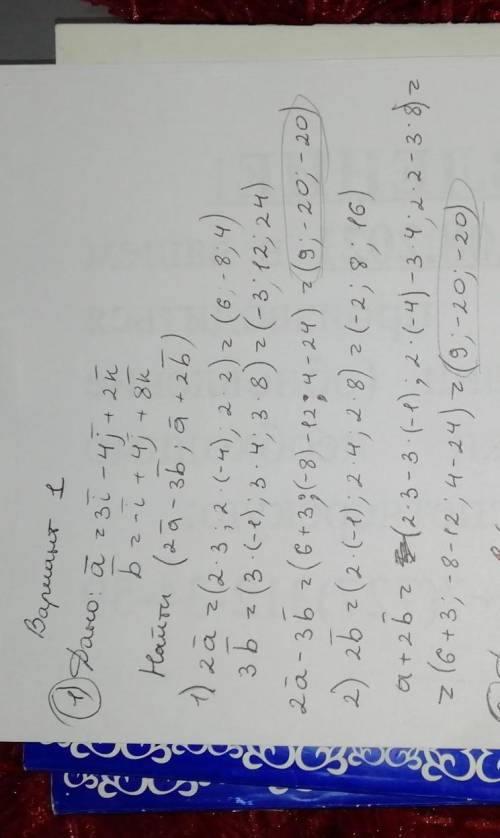 Вариант 1
① Дано: a̅ = 3i̅ - 4j̅ + 2k̅
b̅ = -i̅ + 4j̅ + 8k̅
Найти (2a̅ - 3b̅; a̅ + 2b̅)
1) 2a̅ = (2·3; 2·(-4); 2·2) = (6; -8; 4)
3b̅ = (3·(-1); 3·4; 3·8) = (-3; 12; 24)
2a̅ - 3b̅ = (6+3; (-8)-12; 4-24) = (9; -20; -20)
2) 2b̅ = (2·(-1); 2·4; 2·8) = (-2; 8; 16)
a̅ + 2b̅ = (2·3-3·(-1); 2·(-4)-3·4; 2·2-3·8) =
= (6+3; -8-12; 4-24) = (9; -20; -20)